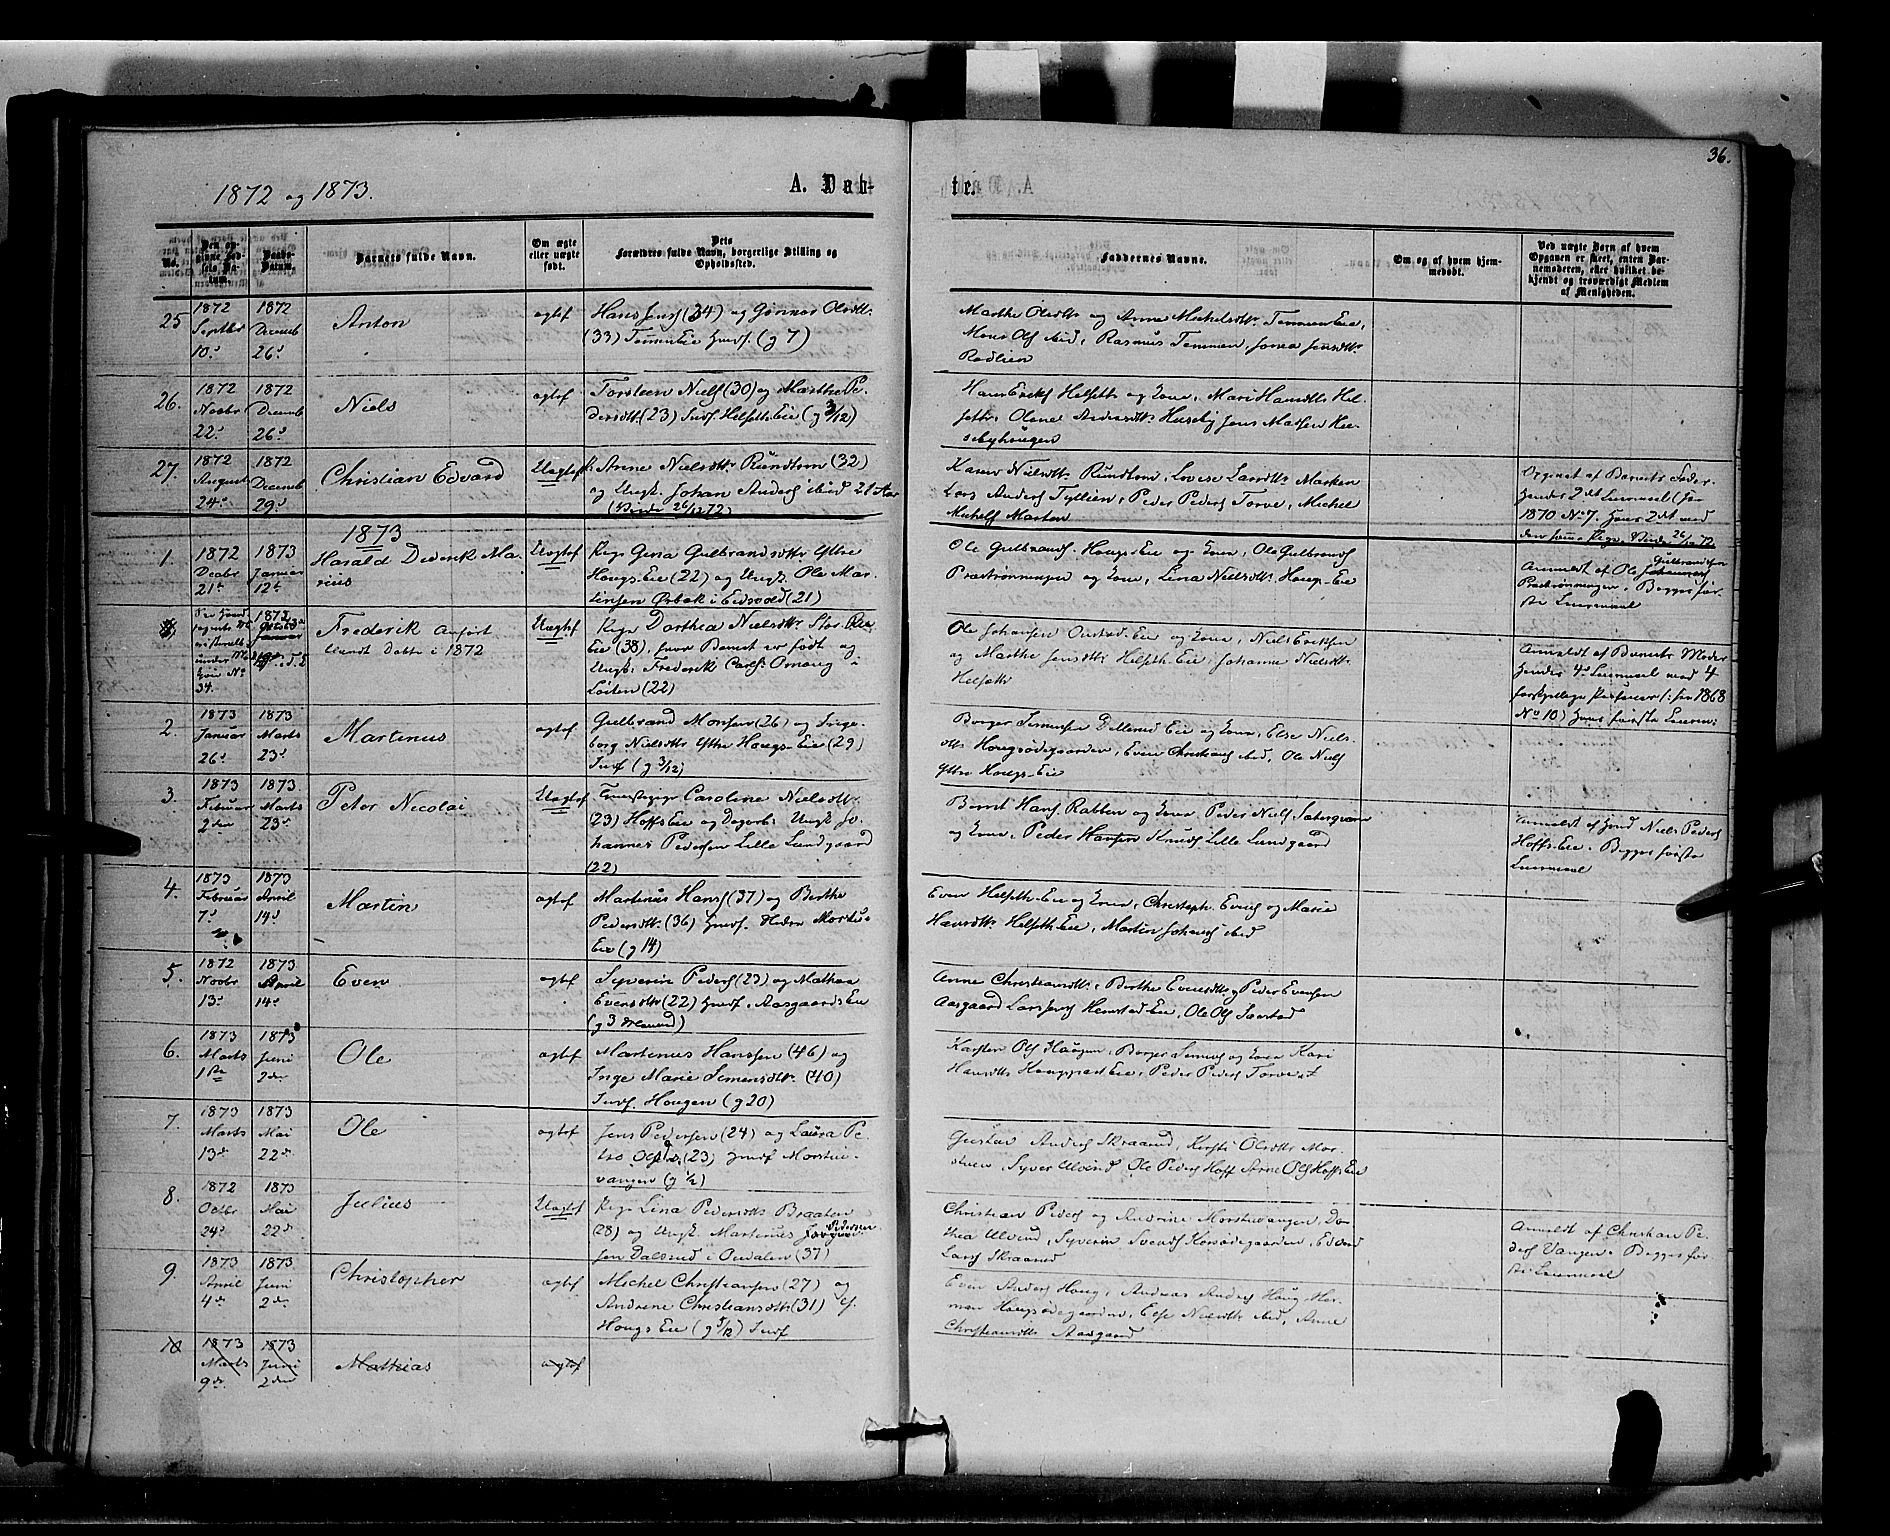 36.
1872 og 1873.
A. Døb-
te.
No.
Den op-
givne Fød-
sels Da-
tum.
Daabs-
Datum.
Barnets fulde Navn.
Om ægte
eller uægte
født.
Dets
Forældres fulde Navn, borgerlige Stilling og
Opholdssted.
Faddernes Navne.
Om og af hvem hjem-
medøbt.
Ved uægte Barn af hvem
Opgaven er skeet, enten Bar-
nemoderen, eller hvilket be-
kjendt og troværdigt Medlem
af Menigheden.
25
1872
Septbr
10.
1872
Decemb
26.
Anton
ægtef
Hans Jensf (34) og Gunnor Olsdtr.
(33) Temmen Eie (g 7)
Marthe Olsdtr og Anne Michelsdtr Temmen Eie,
Mons Olf ibid, Rasmus Temmen, Jonea Jensdtr
Rødlien
26.
1872
Novbr
22.
1872
Decemb
26.
Niels
ægtef
Torsteen Nielsf (30) og Marthe Pe-
dersdtr (23) Indf. Helseth Eie (g 3/12)
Hans Eriks Helseth og Kone, Mari Hansdtr Hel-
seth, Oline Andersdtr Huseby Jens Matsen Hu-
sebyhougen
27.
1872
August
24.
1872
Decemb
29.
Christian Edvard
Uægtef
P. Anne Nielsdtr Rundtom (32)
og Ungk. Johan Andersf ibid 21 Aar
(Viede 26/12 72)
Karen Nielsdtr Rundtom, Lovise Larsdtr Marken
Lars Andersf Tyllien, Peder Pedersf Torve, Michel
Michelsf Morton
Opgivet af Barnets Fader
Hendes 2det Leiermaal (før
1870 No 7. Hans 2det med
den samme Pige. Viede 26/12 72
1873
1.
1872
Decbr
21.
1873
Januar
12te
Harald Diderik Ma-
rius
Uægtef
Pige Gina Gulbrandsdtr Ytre
Hougs Eie (22) og Ungk. Ole Mar-
tinsen Ørbæk i Eidsvold (21)
Ole Gulbrandsf. Hougs Eie og Kone, Ole Gulbrandsf
Præstrønningen og Kone, Lina Nielsdtr Houg-Eie
Anmeldt af Ole Johannesf Gulbrandsen
Præstrønningen, Begges før-
ste Leiermaal
34.
1873
Januar
Frederik anført
blandt Døbte i 1872
Uægtef
Pige Dorthea Nielsdtr Stor Ree
Eie (38), hvor Barnet er født og
Ungk. Frederik Carlsf. Omang i
Løiten (22)
Ole Johansen Onstad Eie og Kone, Niels Eriksen
og Marthe Jensdtr Helseth Eie, Johanne Nielsdtr
Helseth
Anmeldt af Barnets Moder
Hendes 4de Leiermaal med 4
forskjellige Personer (: før 1868
No 10) Hans første Leierm:
2.
1873
Januar
26.
1873
Marts
23.
Martinus
ægtef
Gulbrand Monsen (26) og Inge-
borg Nielsdtr Ytre Hougs-Eie (29)
Indf (g 3/12)
Borger Simensen Dillerud Eie og Kone, Else Niels-
dtr Hougsødegaarden, Even Christiansf ibid, Ole Nielsf
Ytre Hougs-Eie
3.
1873
Februar
2den
1873
Marts
23.
Peter Nicolai
Uægtef
Caroline Nielsdtr.
(23) Hoffs Eie og Dagarb. Ungk. Jo-
hannes Pedersen Lille Lundgaard
(22)
Bernt Hansf Rabben og Kone Peder Nielsf
og Kone, Peder Hansen Knudsf Lille Lundgaard
Anmeldt af Niels Pedersf
Hoffs Eie. Begges første
Leiermaal
4.
1873
Februar
7.
1873
April
14.
Martin
ægtef
Martinus Hansf (37) og Berthe
Pedersdtr. (36)
Eie (g 14)
Even Helseth-Eie og Kone, Christoph. Evensf og Marie
Hansdtr. Helseth-Eie, Martin Johansf ibid
5.
1872
Novbr
13.
1873
April
14.
Even
ægtef
Syverin Pedersf (23) og Mathea
Evensdtr (22) Aasgaards Eie
(g 3 Maaned)
Anne Christiansdtr, Berthe Evensdtr og Peder Evensen
Aasgaard Lars Jensf Hemstad-Eie, Ole Olf Sæstad
6.
1873
Marts
1ste
1873
Juni
2den
Ole
ægtef
Martinus Hanssen (46) og
Inge Marie Simensdtr. (40)
Indf. Hougen (g 20)
Karsten Olf Haugen, Borger Simensf og Kone Kari
Hansdtr Eie, Peder Pedersf Torve
7.
1873
Marts
13de
1873
Mai
22de
Ole
ægtef
Jens Pedersen (24) og Laura Pe-
(23)
vangen (g 1/2)
Gustav Andersf Skraarud, Kirsti Olsdtr Mor-
stuen, Syver Ulvind, Ole Pedersf Hoff Arne Olf Hoffs Eie
8.
1872
Octbr
24.
1873
Mai
22de
Julius
Uægtef
Pige Lina Pedersdtr Braaten
(28) og Ungk. Martinus Pedersen
Dalsrud i Odalen (37)
Christian Pedersf og Andrine Morstuvangen, Do-
rthea Ulvind, Syverin Svendsf Korsødegaarden, Edvard
Larsf Skraarud
Anmeldt af Christian Pe-
dersf Vangen, Begges før-
ste Leiermaal
9.
1873
April
4de
1873
Juni
2den
Christopher
ægtef
Michel Christiansen (27) og
Andrine Christiansdtr (31)
Hougs Eie (g 5/12) Indf
Even Andersf Houg, Andreas Andersf Houg Her-
man Hougsødegaarden, Else Nilsdtr ibid, Anne
Christiansdtr Aasgaard
10
1873
Marts
9de
1873
Juni
2den
Mathias
ægtef